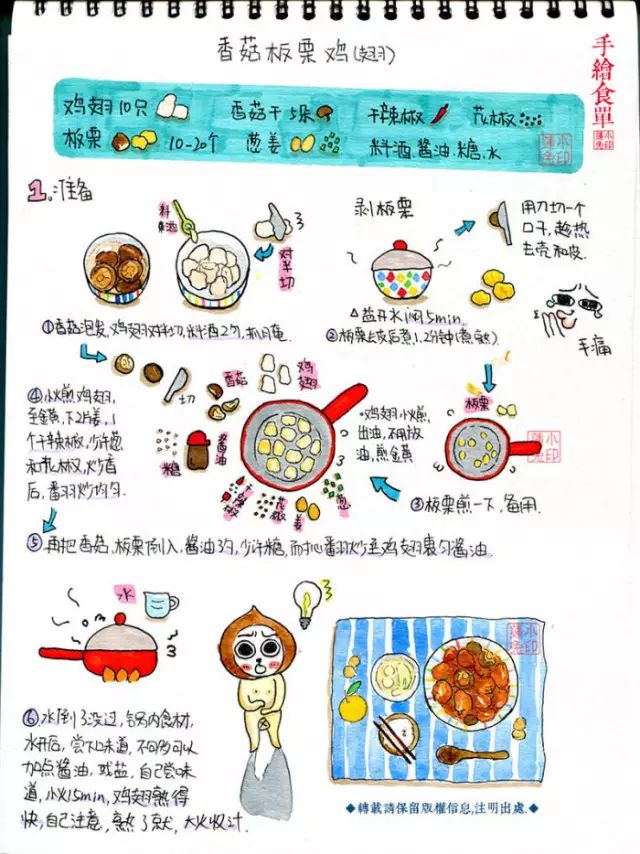 香菇板栗鸡(翅)
手繪食單
鸡翅10只
香菇干5朵
干辣椒
花椒
板栗
10-20个
葱姜
料酒.酱油.糖.水
1.准备
料酒
对半切
剥板栗
用刀切一个
口子,趁热
去壳和皮.
△盖开水闷5min.
手痛
①香菇泡发,鸡翅对半切,料酒2勺,抓腌.
②板栗去皮后煮1.2分钟
切
香菇
鸡翅
④小火煎鸡翅,
至金黄,下2片姜,1
个干辣椒,少许葱
和花椒,炒香
后,翻炒均匀.
糖
酱油
干辣椒
花椒
姜
葱
·鸡翅小火煎,
出油,不用放
油,煎金黄
板栗
③板栗煎一下,备用.
⑤再把香菇.板栗倒入,酱油3勺,少许糖,而翻炒至鸡翅裹匀酱油.
水
⑥水倒了没过,锅内食材,
水开后,尝下味道,不同多可以
加点酱油,或盐,自己尝味
道,小火15min,鸡翅熟得
快,自己注意,熟了就,大火收汁.
◆轉載請保留版權信息,注明出處.◆